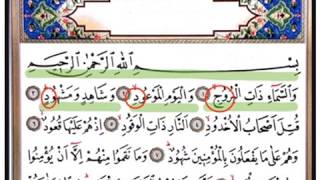 بِسْمِ اللَّهِ الرَّحْمَٰنِ الرَّحِيمِ
وَالسَّمَاءِ ذَاتِ الْبُرُوجِ ١ وَالْيَوْمِ الْمَوْعُودِ ٢ وَشَاهِدٍ وَمَشْهُودٍ ٣
قُتِلَ أَصْحَابُ الْأُخْدُودِ ٤ النَّارِ ذَاتِ الْوَقُودِ ٥ إِذْ هُمْ عَلَيْهَا قُعُودٌ ٦
وَهُمْ عَلَىٰ مَا يَفْعَلُونَ بِالْمُؤْمِنِينَ شُهُودٌ ٧ وَمَا نَقَمُوا مِنْهُمْ إِلَّا أَنْ يُؤْمِنُوا